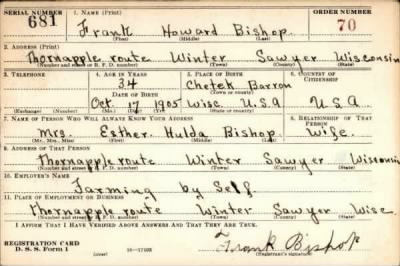 SERIAL NUMBER 1. NAME (Print) ORDER NUMBER
681 Frank Howard Bishop 70
(First) (Middle) (Last)
2. ADDRESS (Print)
Thornapple route Winter Sawyer Wisconsin
(Number and street or R. F. D. number) (Town) (County) (State)
3. TELEPHONE 4. AGE IN YEARS 5. PLACE OF BIRTH 6. COUNTRY OF CITIZENSHIP
34 Chetek Barron
DATE OF BIRTH (Town or county)
Oct 17 1905 Wisc. U.S.A U S A
(Exchange) (Number) (Mo.) (Day) (Yr.) (State or country)
7. NAME OF PERSON WHO WILL ALWAYS KNOW YOUR ADDRESS 8. RELATIONSHIP OF THAT PERSON
Mrs. Esther Hulda Bishop. Wife.
(Mr., Mrs., Miss) (First) (Middle) (Last)
9. ADDRESS OF THAT PERSON
Thornapple route Winter Sawyer Wisconsin
(Number and street or R. F. D. number) (Town) (County) (State)
10. EMPLOYER'S NAME
Farming by Self.
11. PLACE OF EMPLOYMENT OR BUSINESS
Thornapple route Winter Sawyer Wisc
(Number and street or R. F. D. number) (Town) (County) (State)
I AFFIRM THAT I HAVE VERIFIED ABOVE ANSWERS AND THAT THEY ARE TRUE.
REGISTRATION CARD Frank Bishop
D. S. S. Form 1 (over) (Registrant's signature)